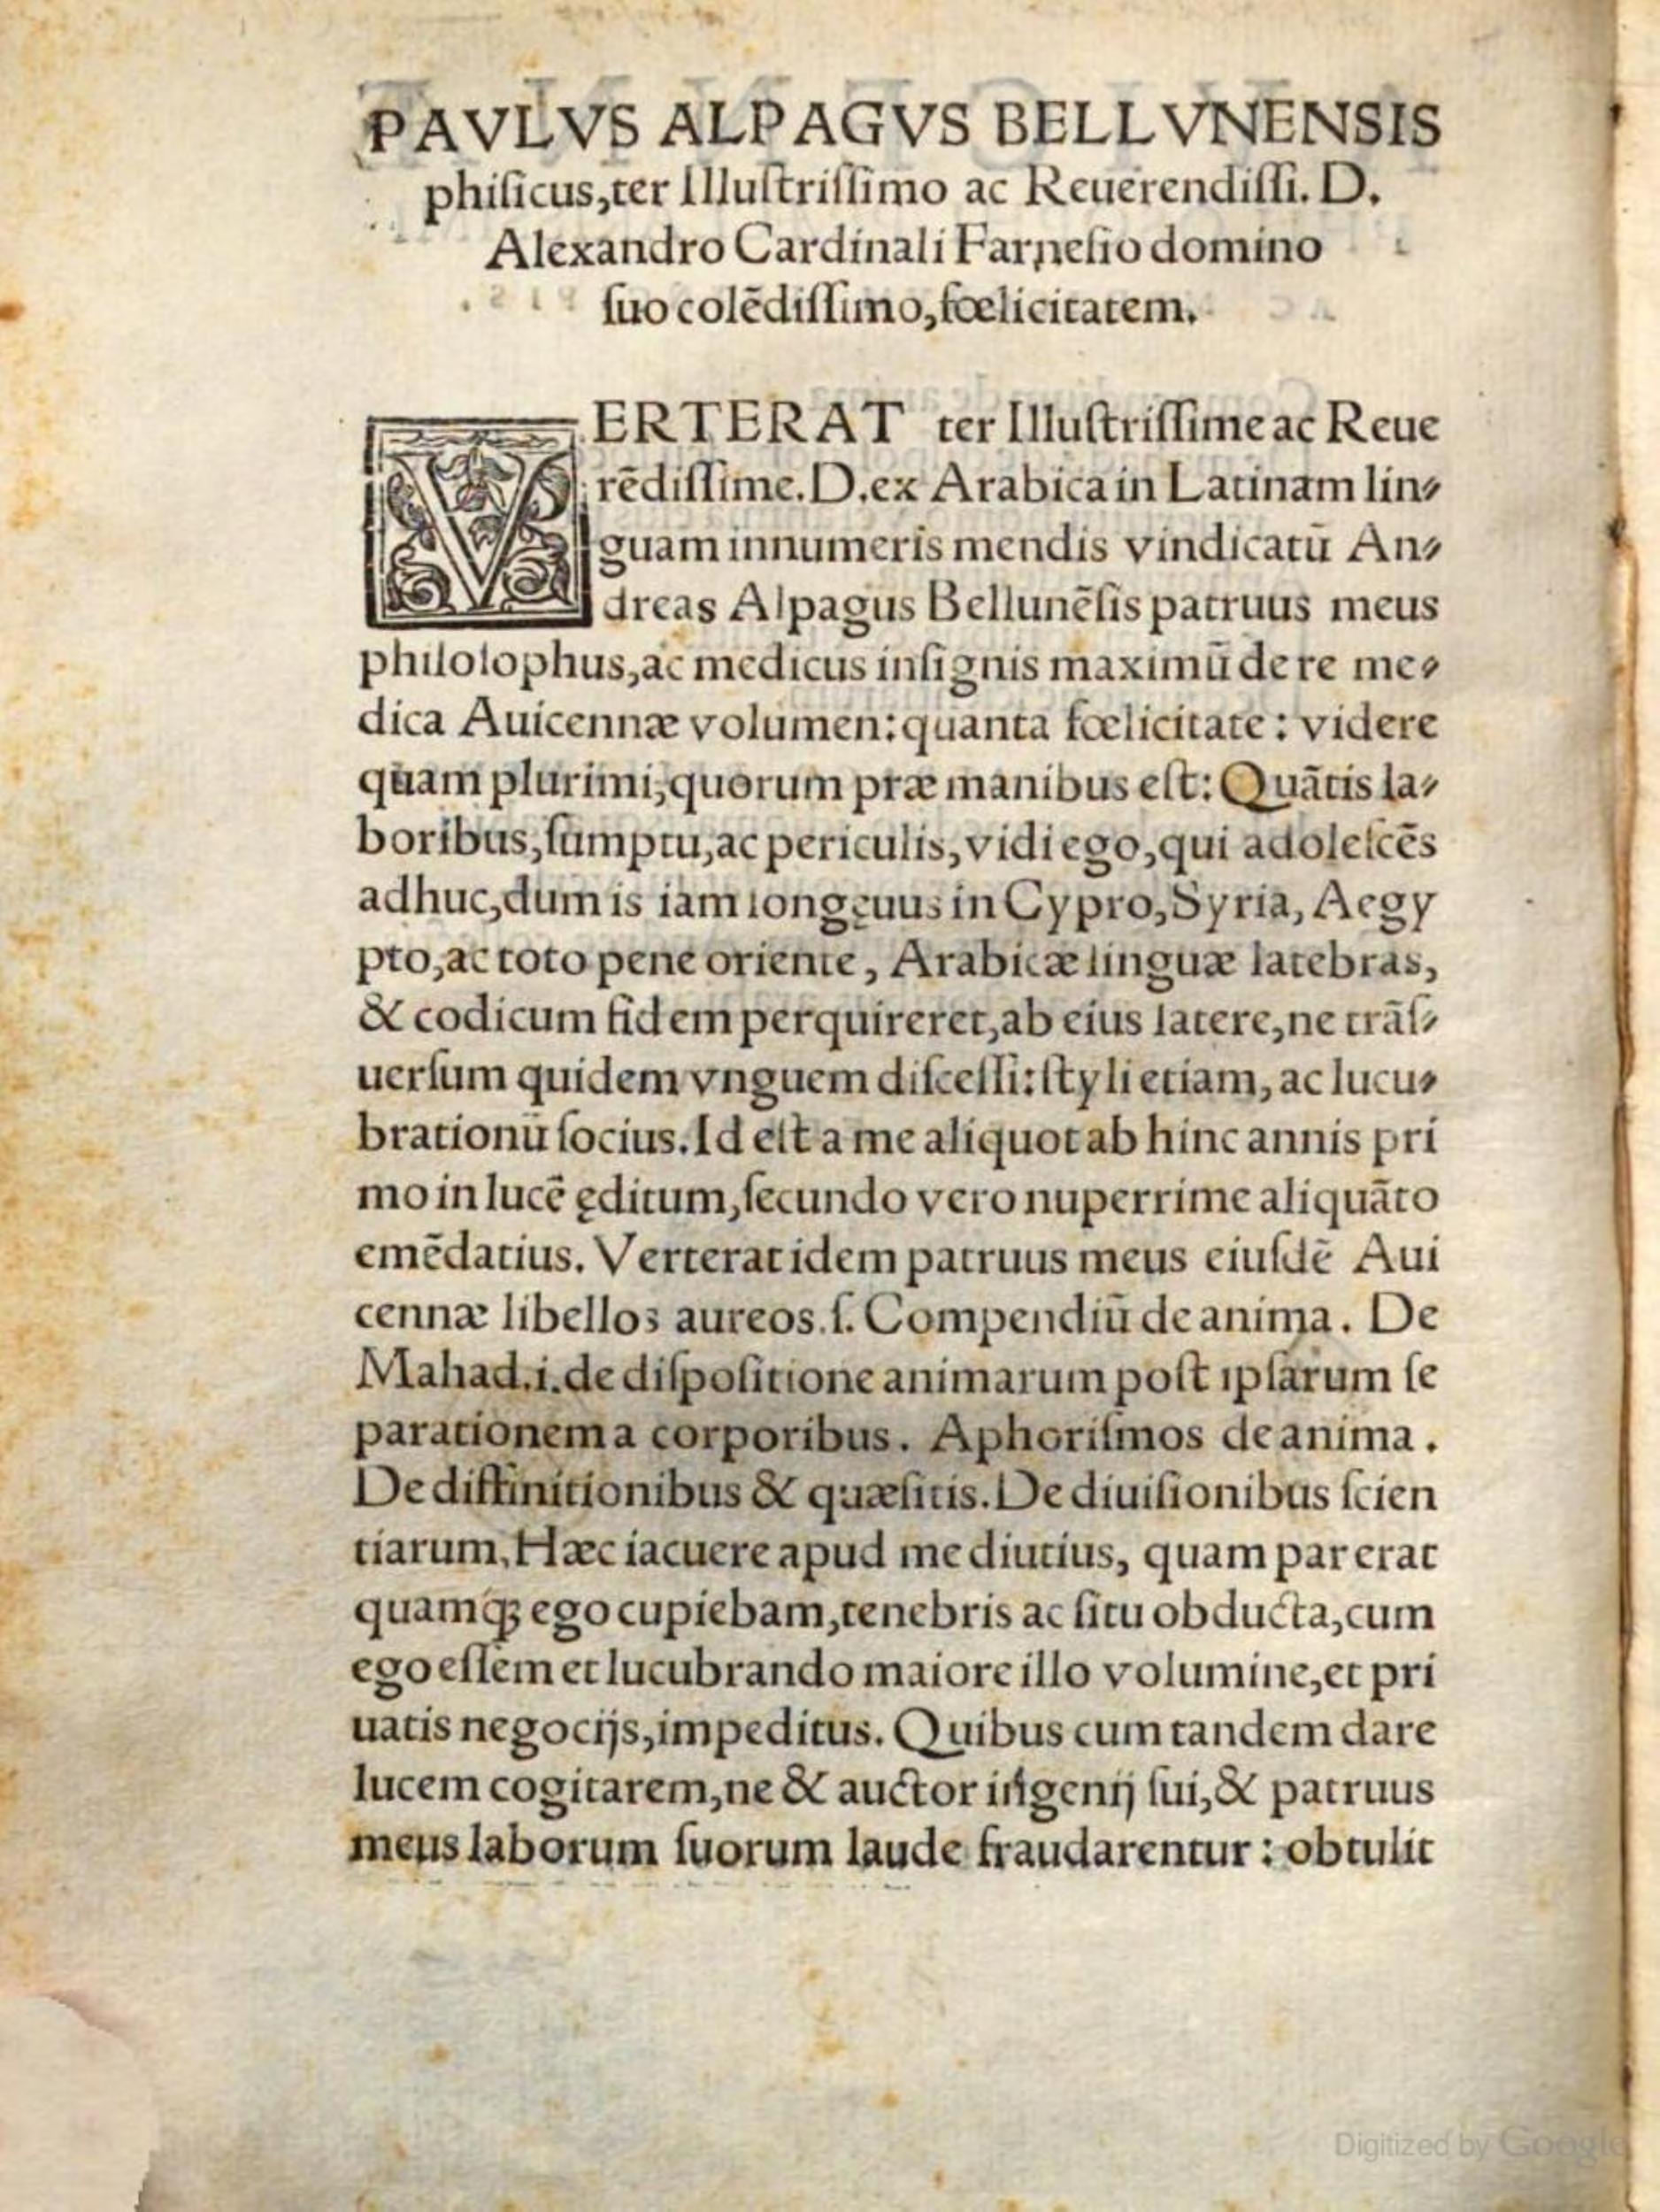 PAVLVS ALPAGVS BELLVNENSIS
phiſicus,ter Illuſtriſſimo ac Reuerendiſſi. D.
Alexandro Cardinali Farneſio domino
ſuo colēdiſſimo,fœlicitatem.
VERTERAT ter Illuſtriſſime ac Reue
rēdiſſime.D.ex Arabica in Latinam lin⸗
guam innumeris mendis vindicatū An⸗
dreas Alpagus Bellunēſis patruus meus
philoſophus,ac medicus inſignis maximū de re me⸗
dica Auicennæ volumen:quanta fœlicitate : videre
quam plurimi,quorum præ manibus eſt: Quātis la⸗
boribus,ſumptu,ac periculis,vidi ego,qui adoleſcēs
adhuc,dum is iam longęuus in Cypro,Syria, Aegy
pto,ac toto pene oriente, Arabicæ linguæ latebras,
& codicum fidem perquireret,ab eius latere,ne trāſ⸗
uerſum quidem vnguem diſceſſi:ſtyli etiam, ac lucu⸗
brationū ſocius.Id eſt a me aliquot ab hinc annis pri
mo in lucē ęditum,ſecundo vero nuperrime aliquāto
emēdatius. Verterat idem patruus meus eiuſdē Aui
cennæ libellos aureos.ſ. Compendiū de anima. De
Mahad.i.de diſpoſitione animarum poſt ipſarum ſe
parationem a corporibus. Aphoriſmos de anima.
De diffinitionibus & quæſitis.De diuiſionibus ſcien
tiarum,Hæc iacuere apud me diutius, quam par erat
quamq́ꝫ ego cupiebam,tenebris ac ſitu obducta,cum
ego eſſem et lucubrando maiore illo volumine,et pri
uatis negocijs,impeditus. Quibus cum tandem dare
lucem cogitarem,ne & auctor ingenij ſui,& patruus
meus laborum ſuorum laude fraudarentur : obtulit
Digitized by Google